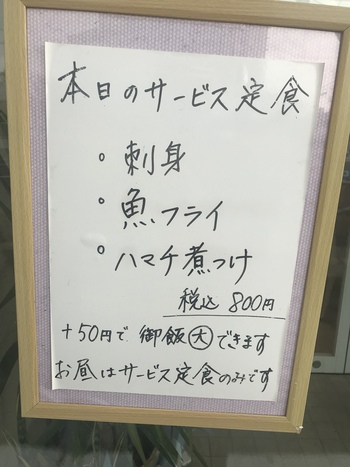 本日のサービス定食
・刺身
・魚フライ
・ハマチ煮つけ
税込 800円
+50円で 御飯大できます
お昼はサービス定食のみです